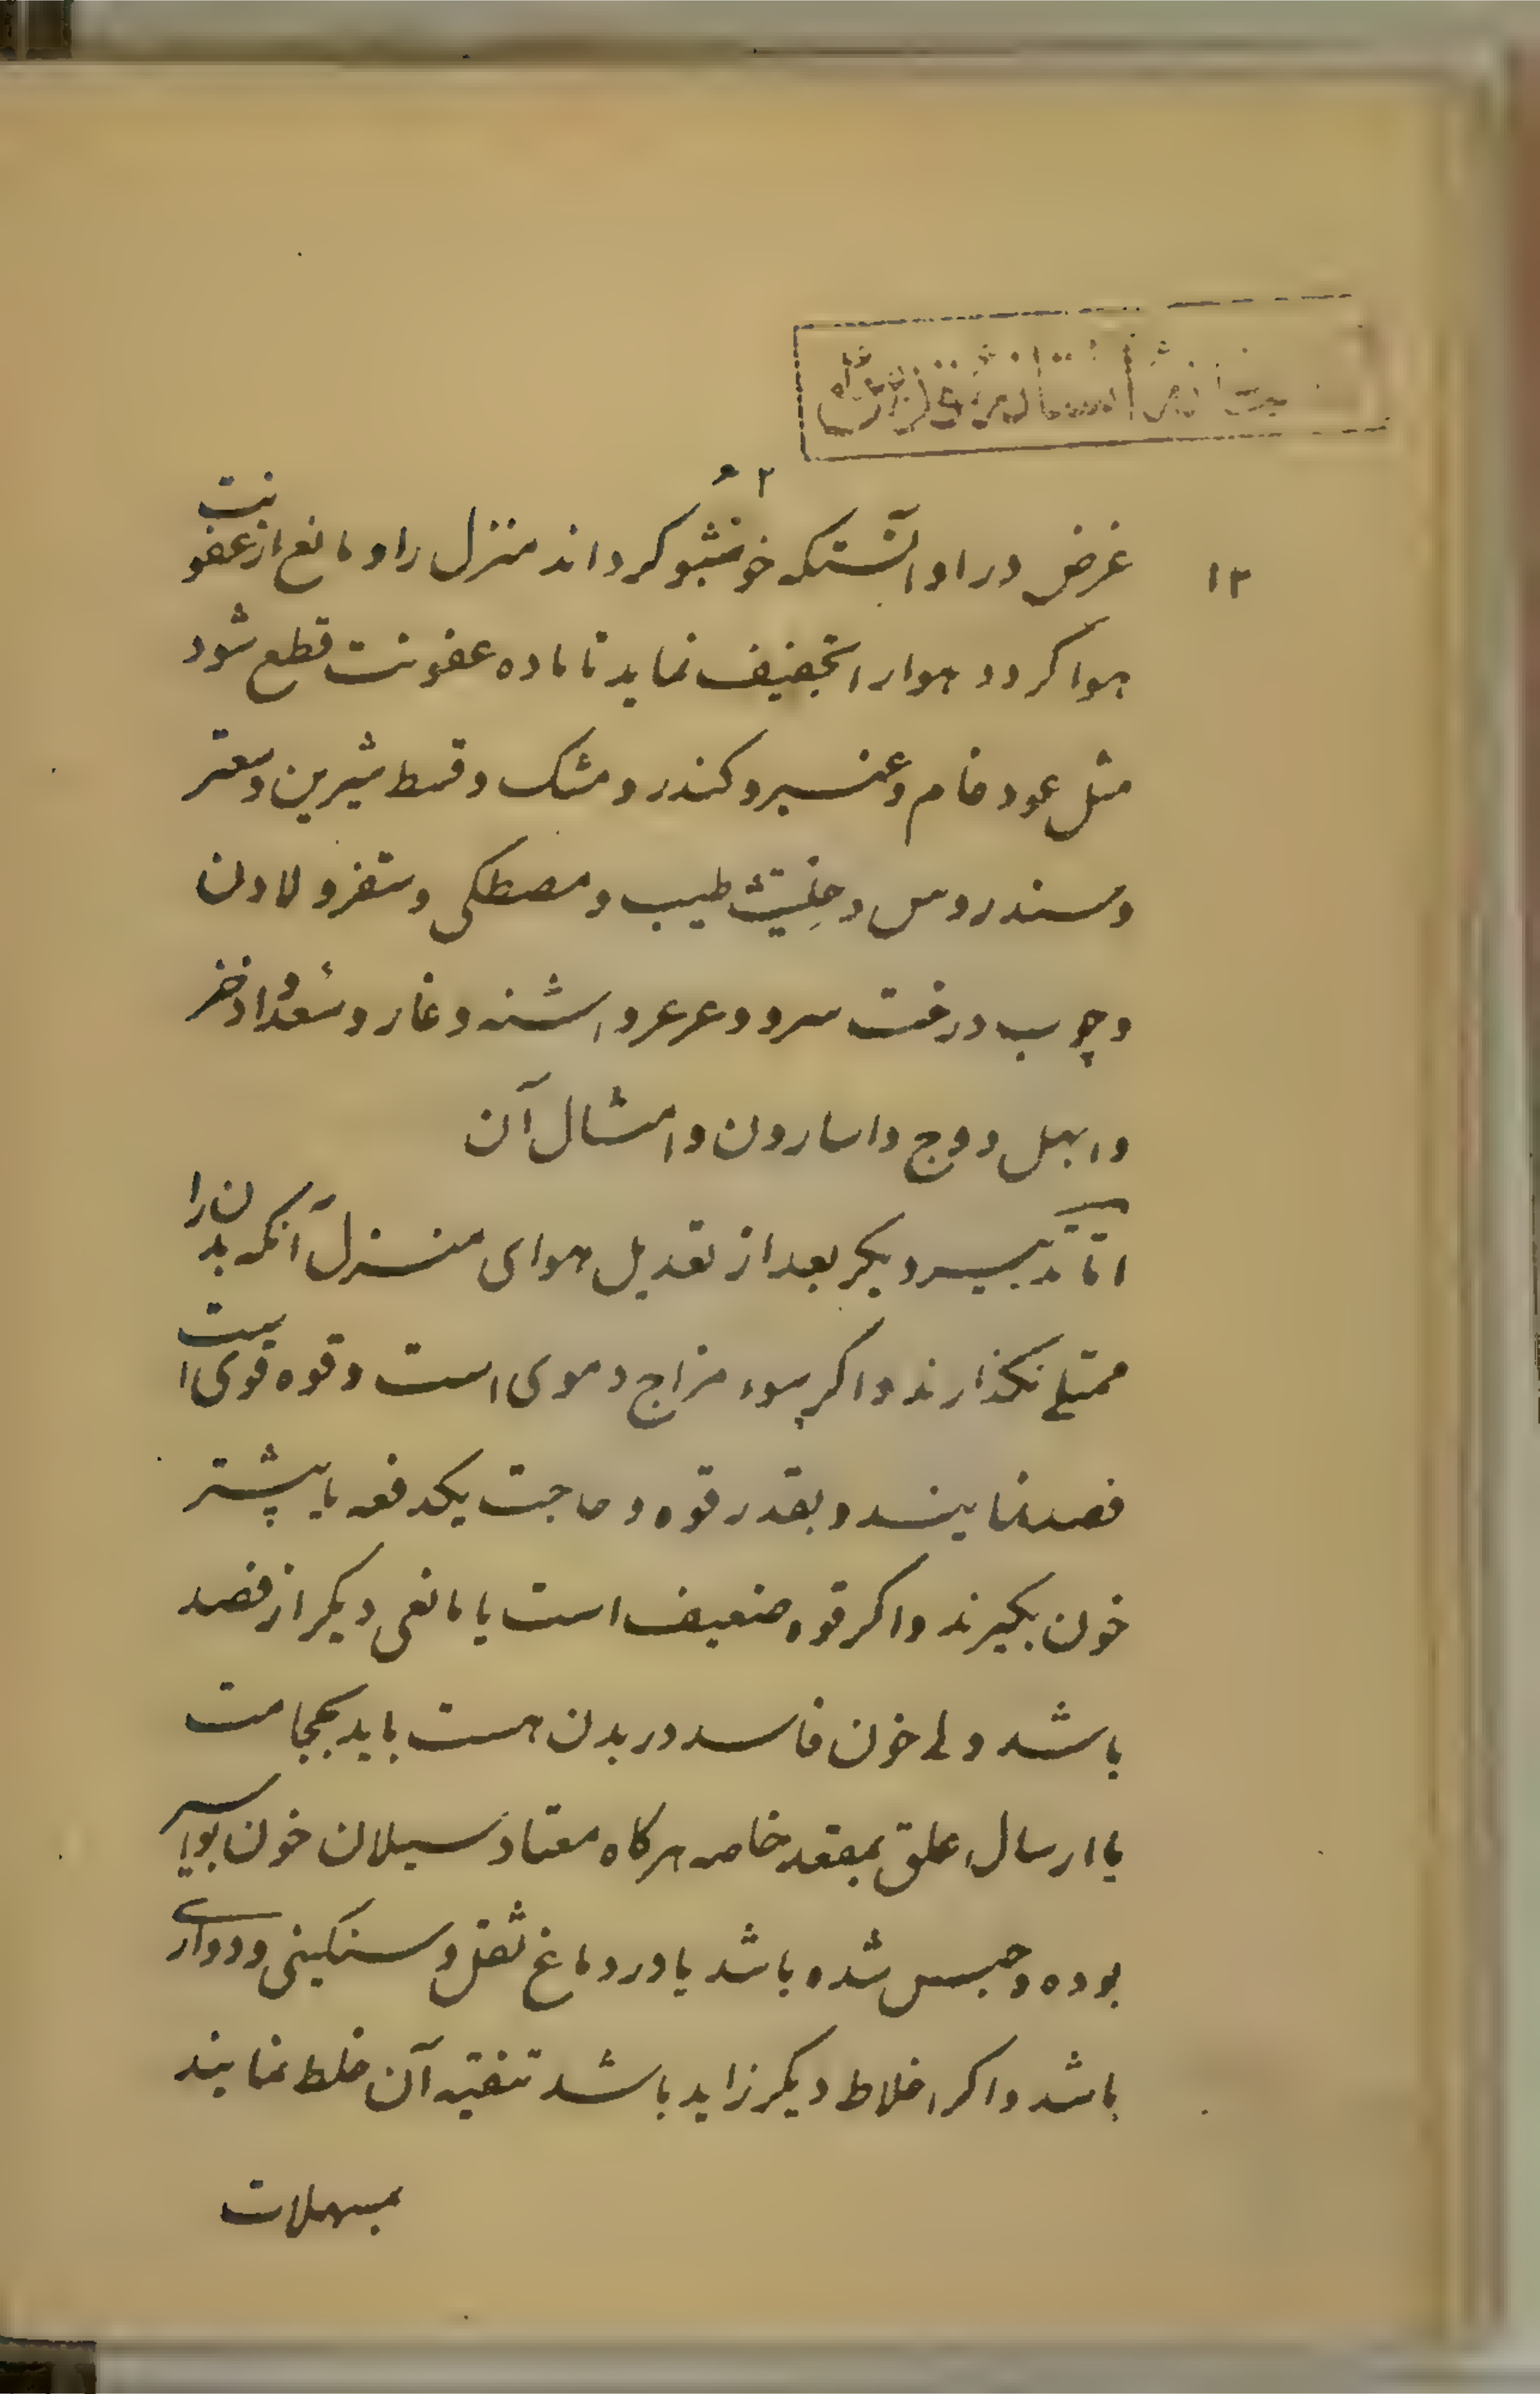 ۱۲
غرض در او آنستکه خوشبو کرداند منزل را و مانع از عفونت
هوا کردد هوا را تجفیف نماید تا ماده عفونت قطع شود
مثل عود خام و عنبر و کندر و مشک و قسط شیرین و سعتر
و سندروس و حلتیت طیب و مصطکی و و لادن
و چوب درخت سرو و عرعر و اشنه و غار و سعد و اذخر
و ابهل و وج و اسارون و امثال آن
اما تدبیر دیکر بعد از تعدیل هوای منزل آنکه بدن را
ممتلی نکذارند و اکر سوء مزاج دموی است و قوه قوی است
فصد نمایند و بقدر قوه و حاجت یکدفعه یا بیشتر
خون بکیرند و اکر قوه ضعیف است یا مانعی دیکر از فصد
باشد ولی خون فاسد در بدن هست باید بحجامت
یا ارسال علق بمقعد خاصه هرکاه معتاد سیلان خون بواسیر
بوده و حبس شده باشد یا در دماغ ثقل و سنکینی و دواری
باشد و اکر اخلاط دیکر زاید باشد تنقیه آن خلط نمایند
بمسهلات